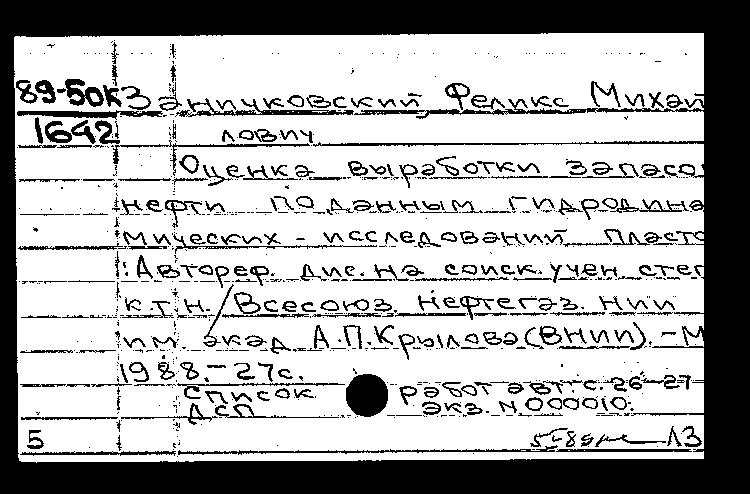 89-50к Заничковский, Феликс Михай
1642 лович
Оценка выработки запасо
нефти по данным гидродина
мических исследований пласто
: Автореф. дис. на соиск. учен. степ
к.т.н. / Всесоюз. нефтегаз. НИИ
им. акад А.П.Крылова (ВНИИ). - М
1988. - 27с.
Список работ авт: с. 26-27
ДСП экз. N 000010.
5 13